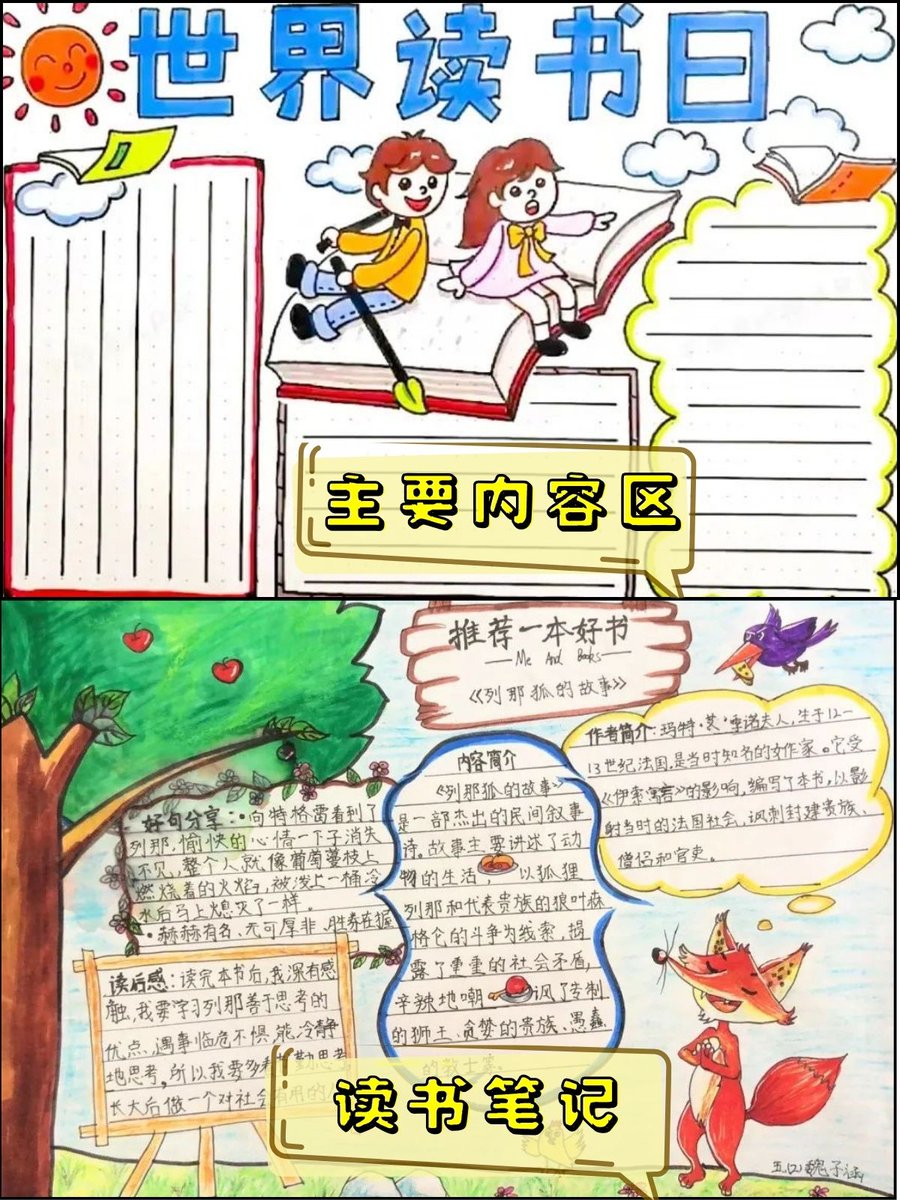 世界读书日
主要内容区
推荐一本好书
Me And Books
《列那狐的故事》
作者简介:玛特·艾·季诺夫人,生于12—
13世纪,法国,是当时知名的女作家。它受
《伊索寓言》的影响,编写了本书,以影
射当时的法国社会,讽刺封建贵族、
僧侣和官吏。
内容简介
《列那狐的故事》
是一部杰出的民间叙事
诗。故事主要讲述了动
物的生活,以狐狸
列那和代表贵族的狼叶森
将仑的斗争为线索,揭
露了重重的社会矛盾,
辛辣地嘲讽了专制
的狮王、贪婪的贵族、愚蠢
的教士
好句分享:·向特格雷看到了
列那,愉快的心情一下子消失
不见,整个人就像葡萄蔓枝上
燃烧着的火焰,被泼上一桶冷
水后马上熄灭了一样。
·赫赫有名、无可厚非、胜券在握
读后感:读完本书后,我深有感
触,我要学习列那善于思考的
优点,遇事临危不惧,能冷静
地思考,所以我要多 勤思考
长大后做一个对社会有用的
读书笔记
魏子涵